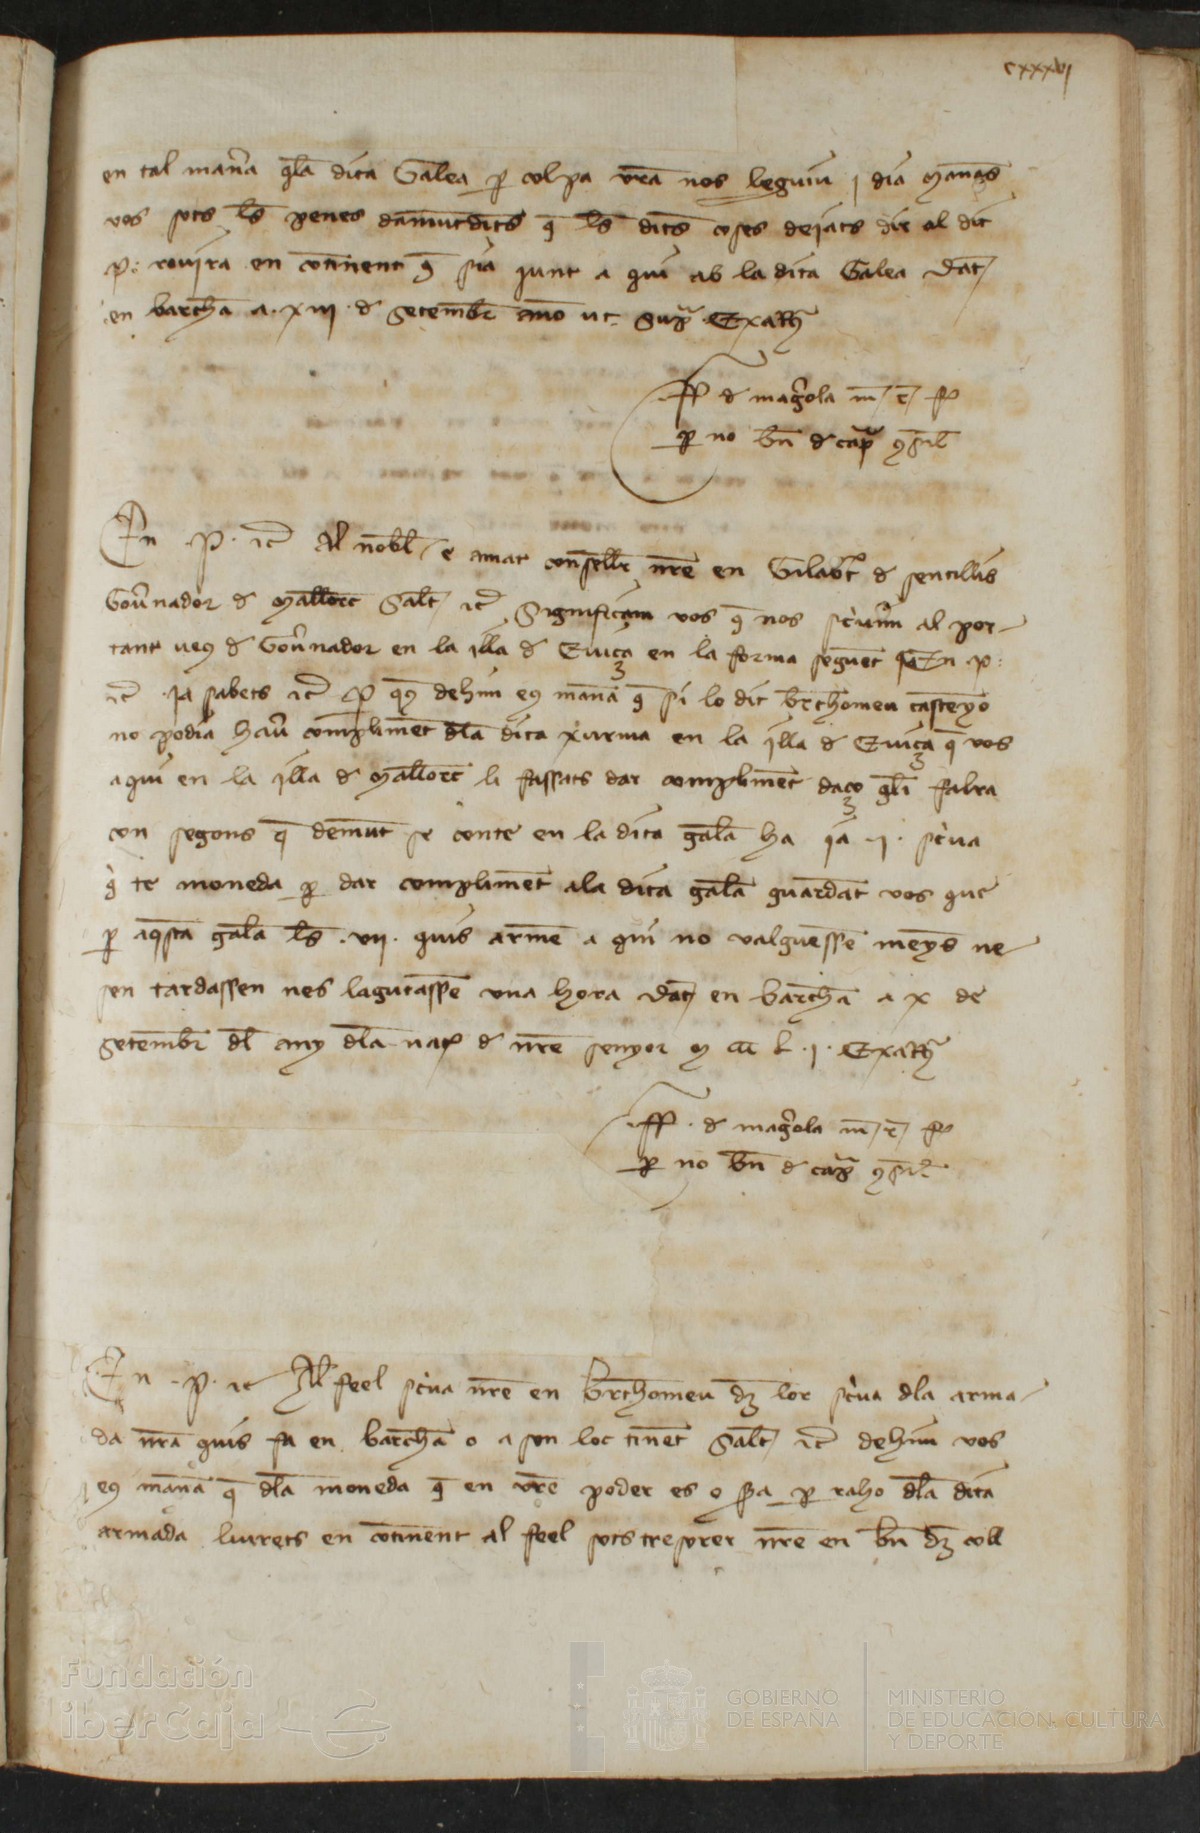 cxxxvj
en tal mana qla dita Galea p colpa vra nos leguiu j dia manas
vos sots ls penes damutdits q ls dits coses deiats dir al dit
p: rovira en continent q sia junt a qui ab la dita Galea dat
en barchna a xiii de Setembr anno ut sup
de magrola
p no bn de cap
En P. etc Al nobl e amat conseller nre en Gilabt de sentillis
Govnador de Mallorc Salt etc Significam vos q nos scrivim al por-
tant veus de Govnador en la illa de Eviça en la forma seguent En p:
etc ja sabets etc P q dehim e mana q si lo dit brthomeu castenyo
no podia hav compliment dla dita xurma en la illa de Eviça q vos
aqui en la illa de Mallorc li fassats dar compliment daço qli falra
con segons q demunt se conte en la dita gala ha ia .j. scriva
q te moneda p dar compliment ala dita gala guardat vos que
p aqsta gala ls .vii. quis arme a qui no valguesse menys ne
sen tardassen nes lagutasse una hora dat en barchna a x de
Setembr dl any dla nat de nre senyor m ccc l .j.
de magrola
p no bn de cap
En .P. etc Al feel scriva nre en brthomeu dz lor scriva dla arma-
da nra quis fa en barchna o a son loc tinent Salt etc dehim vos
e mana q dla moneda q en vre poder es o sra p raho dla dita
armada liurets en continent al feel sots tresorer nre en bn dz coll
Fundación
iberCaja
GOBIERNO
DE ESPAÑA
MINISTERIO
DE EDUCACIÓN, CULTURA
Y DEPORTE